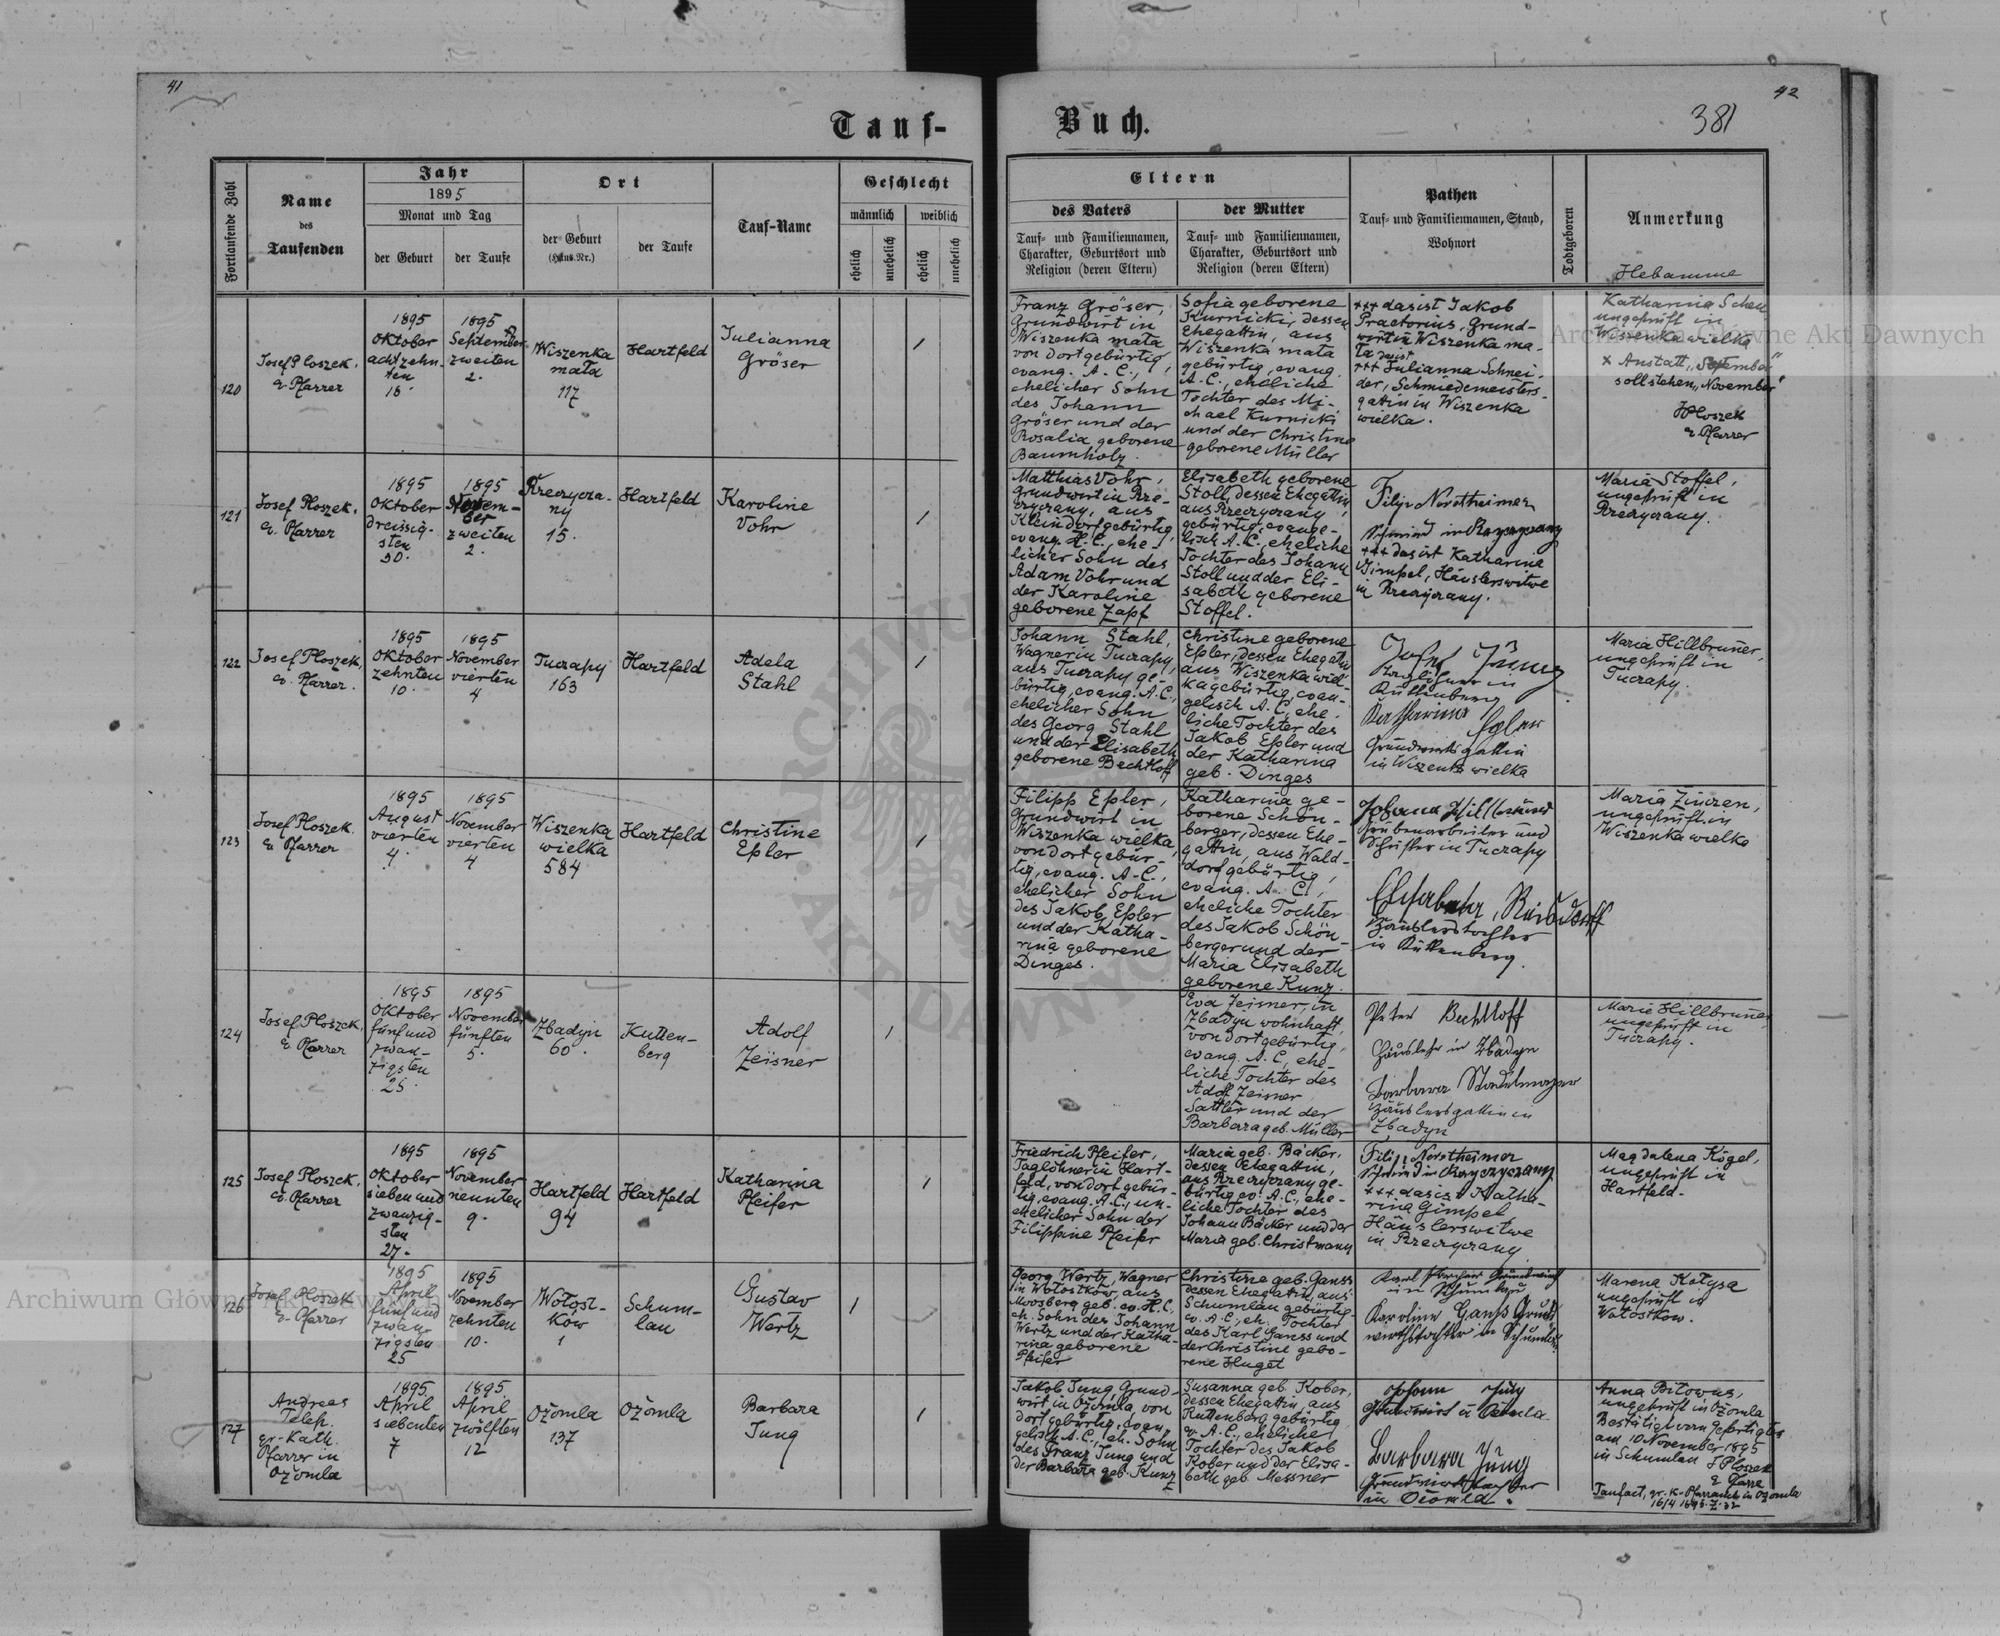 41
42
381
Tauf-
Buch.
Fortlaufende Zahl
Name
des
Taufenden
Jahr
1895
Monat und Tag
der Geburt
der Taufe
Ort
der Geburt
(Haus-Nr.)
der Taufe
Tauf-Name
Geschlecht
männlich
weiblich
ehelich
unehelich
ehelich
unehelich
Eltern
des Vaters
Tauf- und Familiennamen,
Charakter, Geburtsort und
Religion (deren Eltern)
der Mutter
Tauf- und Familiennamen,
Charakter, Geburtsort und
Religion (deren Eltern)
Pathen
Tauf- und Familiennamen, Stand,
Wohnort
Todtgeboren
Anmerkung
Hebamme
120
Josef Ploszek,
ev. Pfarrer
1895
Oktober
achtzehn-
ten
18.
1895
September
zweiten
2.
Wiszenka
mała
117
Hartfeld
Julianna
Gröser
1
Franz Gröser,
Grundwirt in
Wiszenka mała
von dort gebürtig,
evang. A. C.,
ehelicher Sohn
des Johann
Gröser und der
Rosalia geborene
Baumholz.
Sofia geborene
Kurnicki, dessen
Ehegattin, aus
Wiszenka mała
gebürtig, evang.
A. C., eheliche
Tochter des Mi-
chael Kurnicki
und der Christine
geborene Müller
+++ das ist Jakob
Praetorius, Grund-
wirt in Wiszenka ma-
ła
+++ Julianna Schnei-
der, Schmiedemeisters-
gattin in Wiszenka
wielka.
Katharina
ungeprüft in
Wiszenka wielka
x Anstatt „September"
soll stehen „November"
J Ploszek
ev. Pfarrer
121
Josef Ploszek,
ev. Pfarrer
1895
Oktober
dreissig-
sten
30.
1895
Novem-
ber
zweiten
2.
Rzeczycza-
ny
15.
Hartfeld
Karoline
Vohr
1
Matthias Vohr,
Grundwirt in Rze-
czyczany, aus
Kleindorf gebürtig,
evang. H. C., ehe-
licher Sohn des
Adam Vohr und
der Karoline
geborene Zapf
Elisabeth geborene
Stoll, dessen Ehegattin,
aus Rzeczyczany
gebürtig, evange-
lisch A. C., eheliche
Tochter des Johann
Stoll und der Eli-
sabeth geborene
Stoffel.
Filip Northeimer
Schmied in Rzeczyczany
+++ das ist Katharina
Gimpel, Häuslerswitwe
in Rzeczyczany.
Maria Stoffel,
ungeprüft in
Rzeczyczany.
122
Josef Ploszek,
ev. Pfarrer.
1895
Oktober
zehnten
10.
1895
November
vierten
4
Tuczapy
163
Hartfeld
Adela
Stahl
1
Johann Stahl,
Wagner in Tuczapy,
aus Tuczapy ge-
bürtig, evang. A. C.,
ehelicher Sohn
des Georg Stahl
und der Elisabeth
geborene Bechtloff
Christine geborene
Eßler, dessen Ehegattin
aus Wiszenka wiel-
ka gebürtig, evan-
gelisch A. C., ehe-
liche Tochter des
Jakob Eßler und
der Katharina
geb. Dinges
Josef Jung
Taglöhner in
Kuttenberg
Katharina Eßler
Grundwirtsgattin
in Wiszenka wielka
Maria Hillbrunner,
ungeprüft in
Tuczapy.
123
Josef Ploszek,
ev. Pfarrer
1895
August
vierten
4.
1895
November
vierten
4
Wiszenka
wielka
584
Hartfeld
Christine
Eßler
1
Filipp Eßler,
Grundwirt in
Wiszenka wielka,
von dort gebür-
tig, evang. A. C.,
ehelicher Sohn
des Jakob Eßler
und der Katha-
rina geborene
Dinges.
Katharina ge-
borene Schön-
berger, dessen Ehe-
gattin, aus Wald-
dorf gebürtig,
evang. A. C.,
eheliche Tochter
des Jakob Schön-
berger und der
Maria Elisabeth
geborene Kunz.
Schuster in Tuczapy
Häuslerstochter
in Kuttenberg.
Maria Zinczen,
ungeprüft in
Wiszenka wielka
124
Josef Ploszek,
ev. Pfarrer
1895
Oktober
fünf und
zwan-
zigsten
25.
1895
November
fünften
5.
Zbadyn
60.
Kutten-
berg
Adolf
Zeisner
1
Eva Zeisner, in
Zbadyn wohnhaft,
von dort gebürtig,
evang. A. C., ehe-
liche Tochter des
Adolf Zeisner
Sattler und der
Barbara geb. Müller
Peter Bechtloff
Häusler in Zbadyn
Barbara Stadelmayer
Häuslersgattin in
Zbadyn
Maria Hillbrunner
ungeprüft in
Tuczapy.
125
Josef Ploszek,
ev. Pfarrer
1895
Oktober
sieben und
zwanzig-
sten
27.
1895
November
neunten
9.
Hartfeld
94
Hartfeld
Katharina
Pfeifer
1
Friedrich Pfeifer,
Taglöhner in Hart-
feld, von dort gebür-
tig, evang. A. C., un-
ehelicher Sohn der
Filippine Pfeifer
Maria geb. Bäcker,
dessen Ehegattin,
aus Rzeczyczany ge-
bürtig ev. A. C., ehe-
liche Tochter des
Johann Bäcker und der
Maria geb. Christmann
Filip Northeimer
Schmied in Rzeczyczany
+++ das ist Katha-
rina Gimpel
Häuslerswitwe
in Rzeczyczany
Magdalena Kögel,
ungeprüft in
Hartfeld.
126
Josef Ploszek
ev. Pfarrer
1895
April
fünf und
zwan-
zigsten
25
1895
November
zehnten
10.
Wołost-
ków
1
Schum-
lau
Gustav
Wertz
1
Georg Wertz, Wagner
in Wołostków, aus
Moosberg geb. ev. H. C.,
eh. Sohn des Johann
Wertz und der Katha-
rina geborene
Pfeifer
Christine geb. Ganss
dessen Ehegattin, aus
Schumlau gebürtig
ev. A. C., eh. Tochter
des Karl Ganss und
der Christine gebo-
rene Huget
Karoline Ganß Grund
wirthstochter in Schumlau
Marena Kotysa
ungeprüft in
Wołostków.
127
Andreas
Telep.
gr.-kath.
Pfarrer in
Ożomla
1895
April
siebenten
7
1895
April
zwölften
12
Ożomla
137
Ożomla
Barbara
Jung
1
Jakob Jung, Grund-
wirt in Ożomla, von
dort gebürtig, evan-
gelisch A. C., eh. Sohn
des Franz Jung und
der Barbara geb. Kunz
Susanna geb. Kober,
dessen Ehegattin, aus
Kuttenberg gebürtig
ev. A. C., eheliche
Tochter des Jakob
Kober und der Elisa-
beth geb. Messner
Johann Jung
Grundwirt in Ożomla
Barbara Jung
Grundwirtstochter
in Ożomla.
Anna Bitowus,
ungeprüft in Ożomla
Bestätigt vom Gefertigten
am 10 November 1895
in Schumlau J Ploszek
ev. Pfarrer
Taufact, gr. k. Pfarramt in Ożomla
16/4 1895 Z. 32
Archiwum Główne Akt Dawnych
Archiwum Główne Akt Dawnych